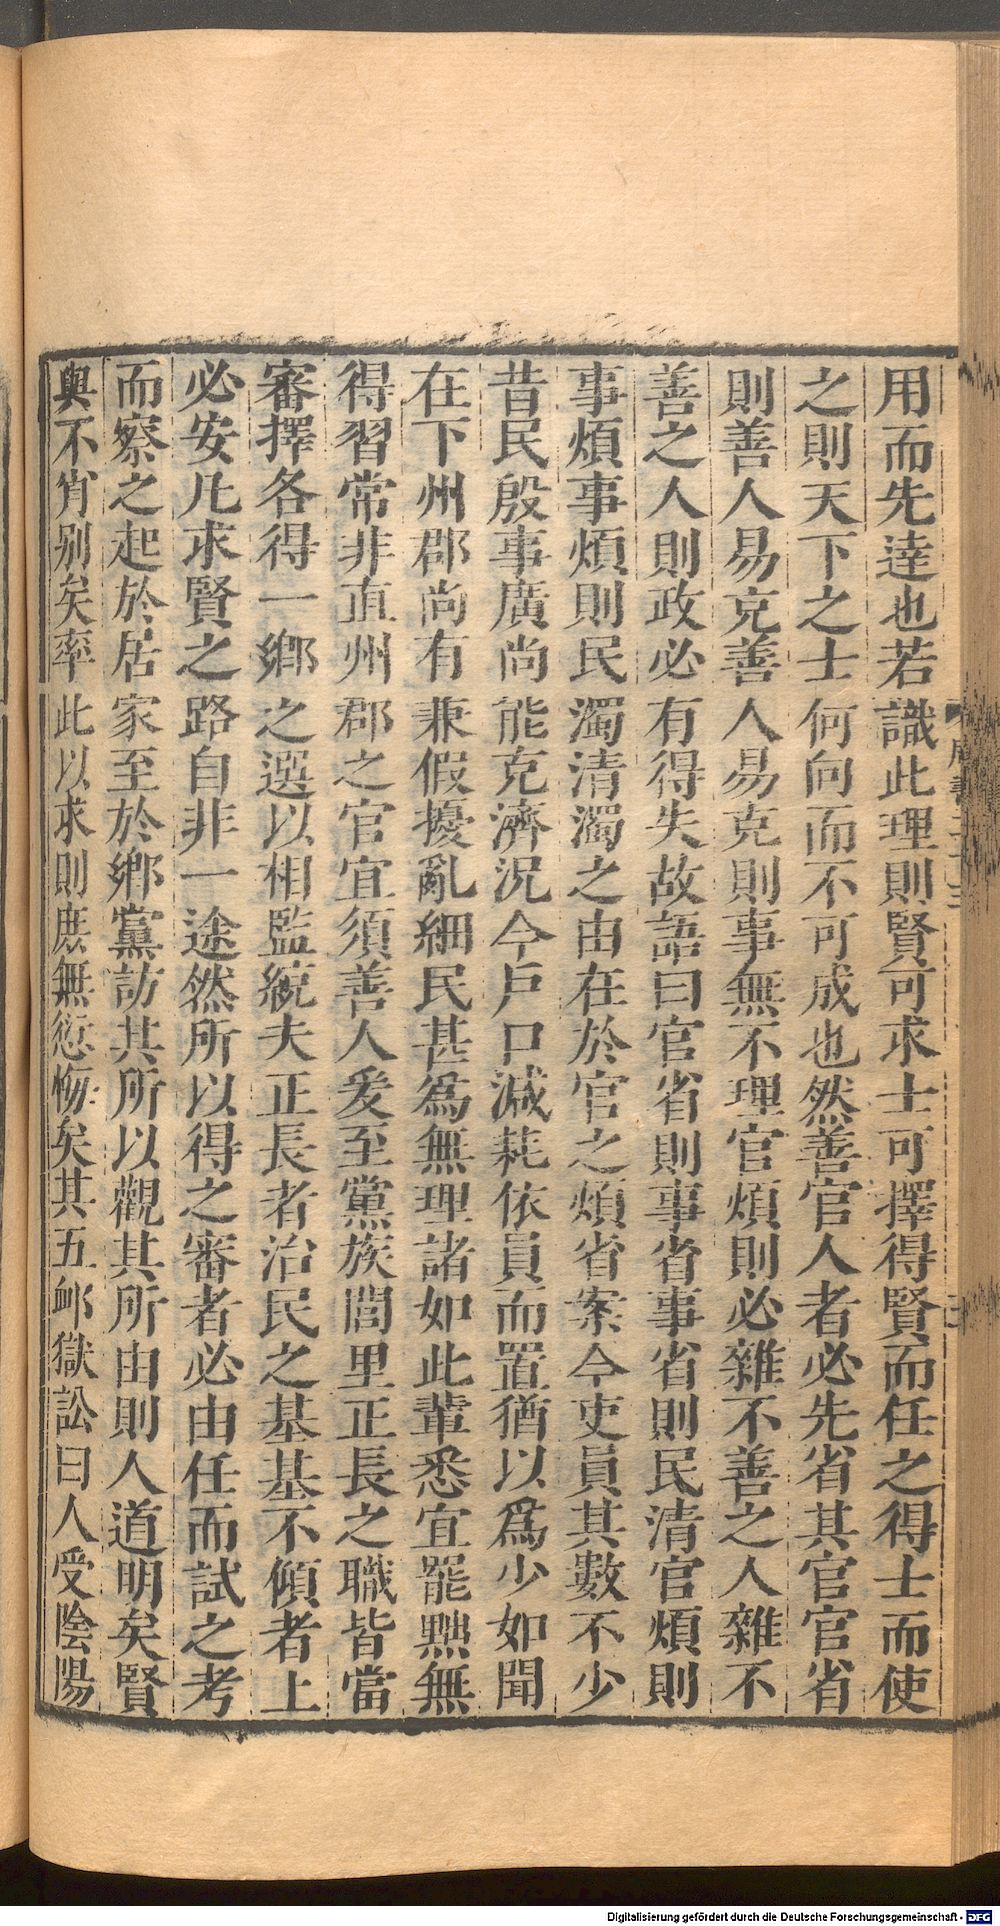 用而先達也若識此理則賢可求士可擇得賢而任之得士而使
之則天下之士何向而不可成也然善官人者必先省其官官省
則善人易充善人易克則事無不理官煩則必雜不善之人雜不
善之人則政必有得失故語曰官省則事省事省則民清官煩則
事煩事煩則民濁清濁之由在於官之煩省案今吏員其數不少
昔民殷事廣尚能克濟況今戶口減耗依員而置猶以爲少如聞
在下州郡尚有兼假擾亂細民甚爲無理諸如此輩悉宜罷黜無
得習常非直州郡之官宜須善人爰至黨族閭里正長之職皆當
審擇各得一鄉之選以相監統夫正長者治民之基基不傾者上
必安凡求賢之路自非一途然所以得之審者必由任而試之考
而察之起於居家至於鄉黨訪其所以觀其所由則人道明矣賢
與不肖别矣率此以求則庶無愆悔矣其五卹獄訟曰人受陰陽
Digitalisierung gefördert durch die Deutsche Forschungsgemeinschaft - DFG